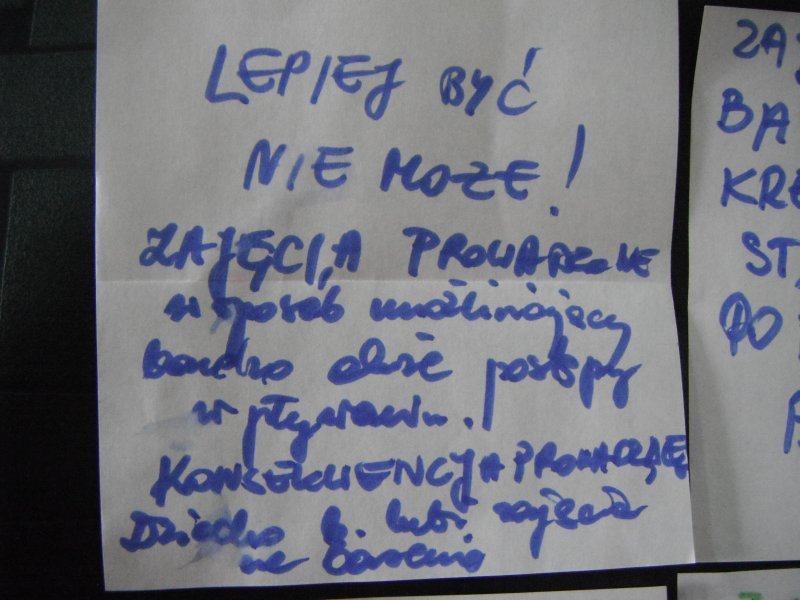 LEPIEJ BYĆ
NIE MOZE!
ZAJĘCIA PROWADZONE
w sposób umożliwiający
bardzo duże postępy
w pływaniu.
KONSEKWENCJA
Dziecko b. lubi zajęcia
na basenie
ZA
BA
KRE
ST
PO